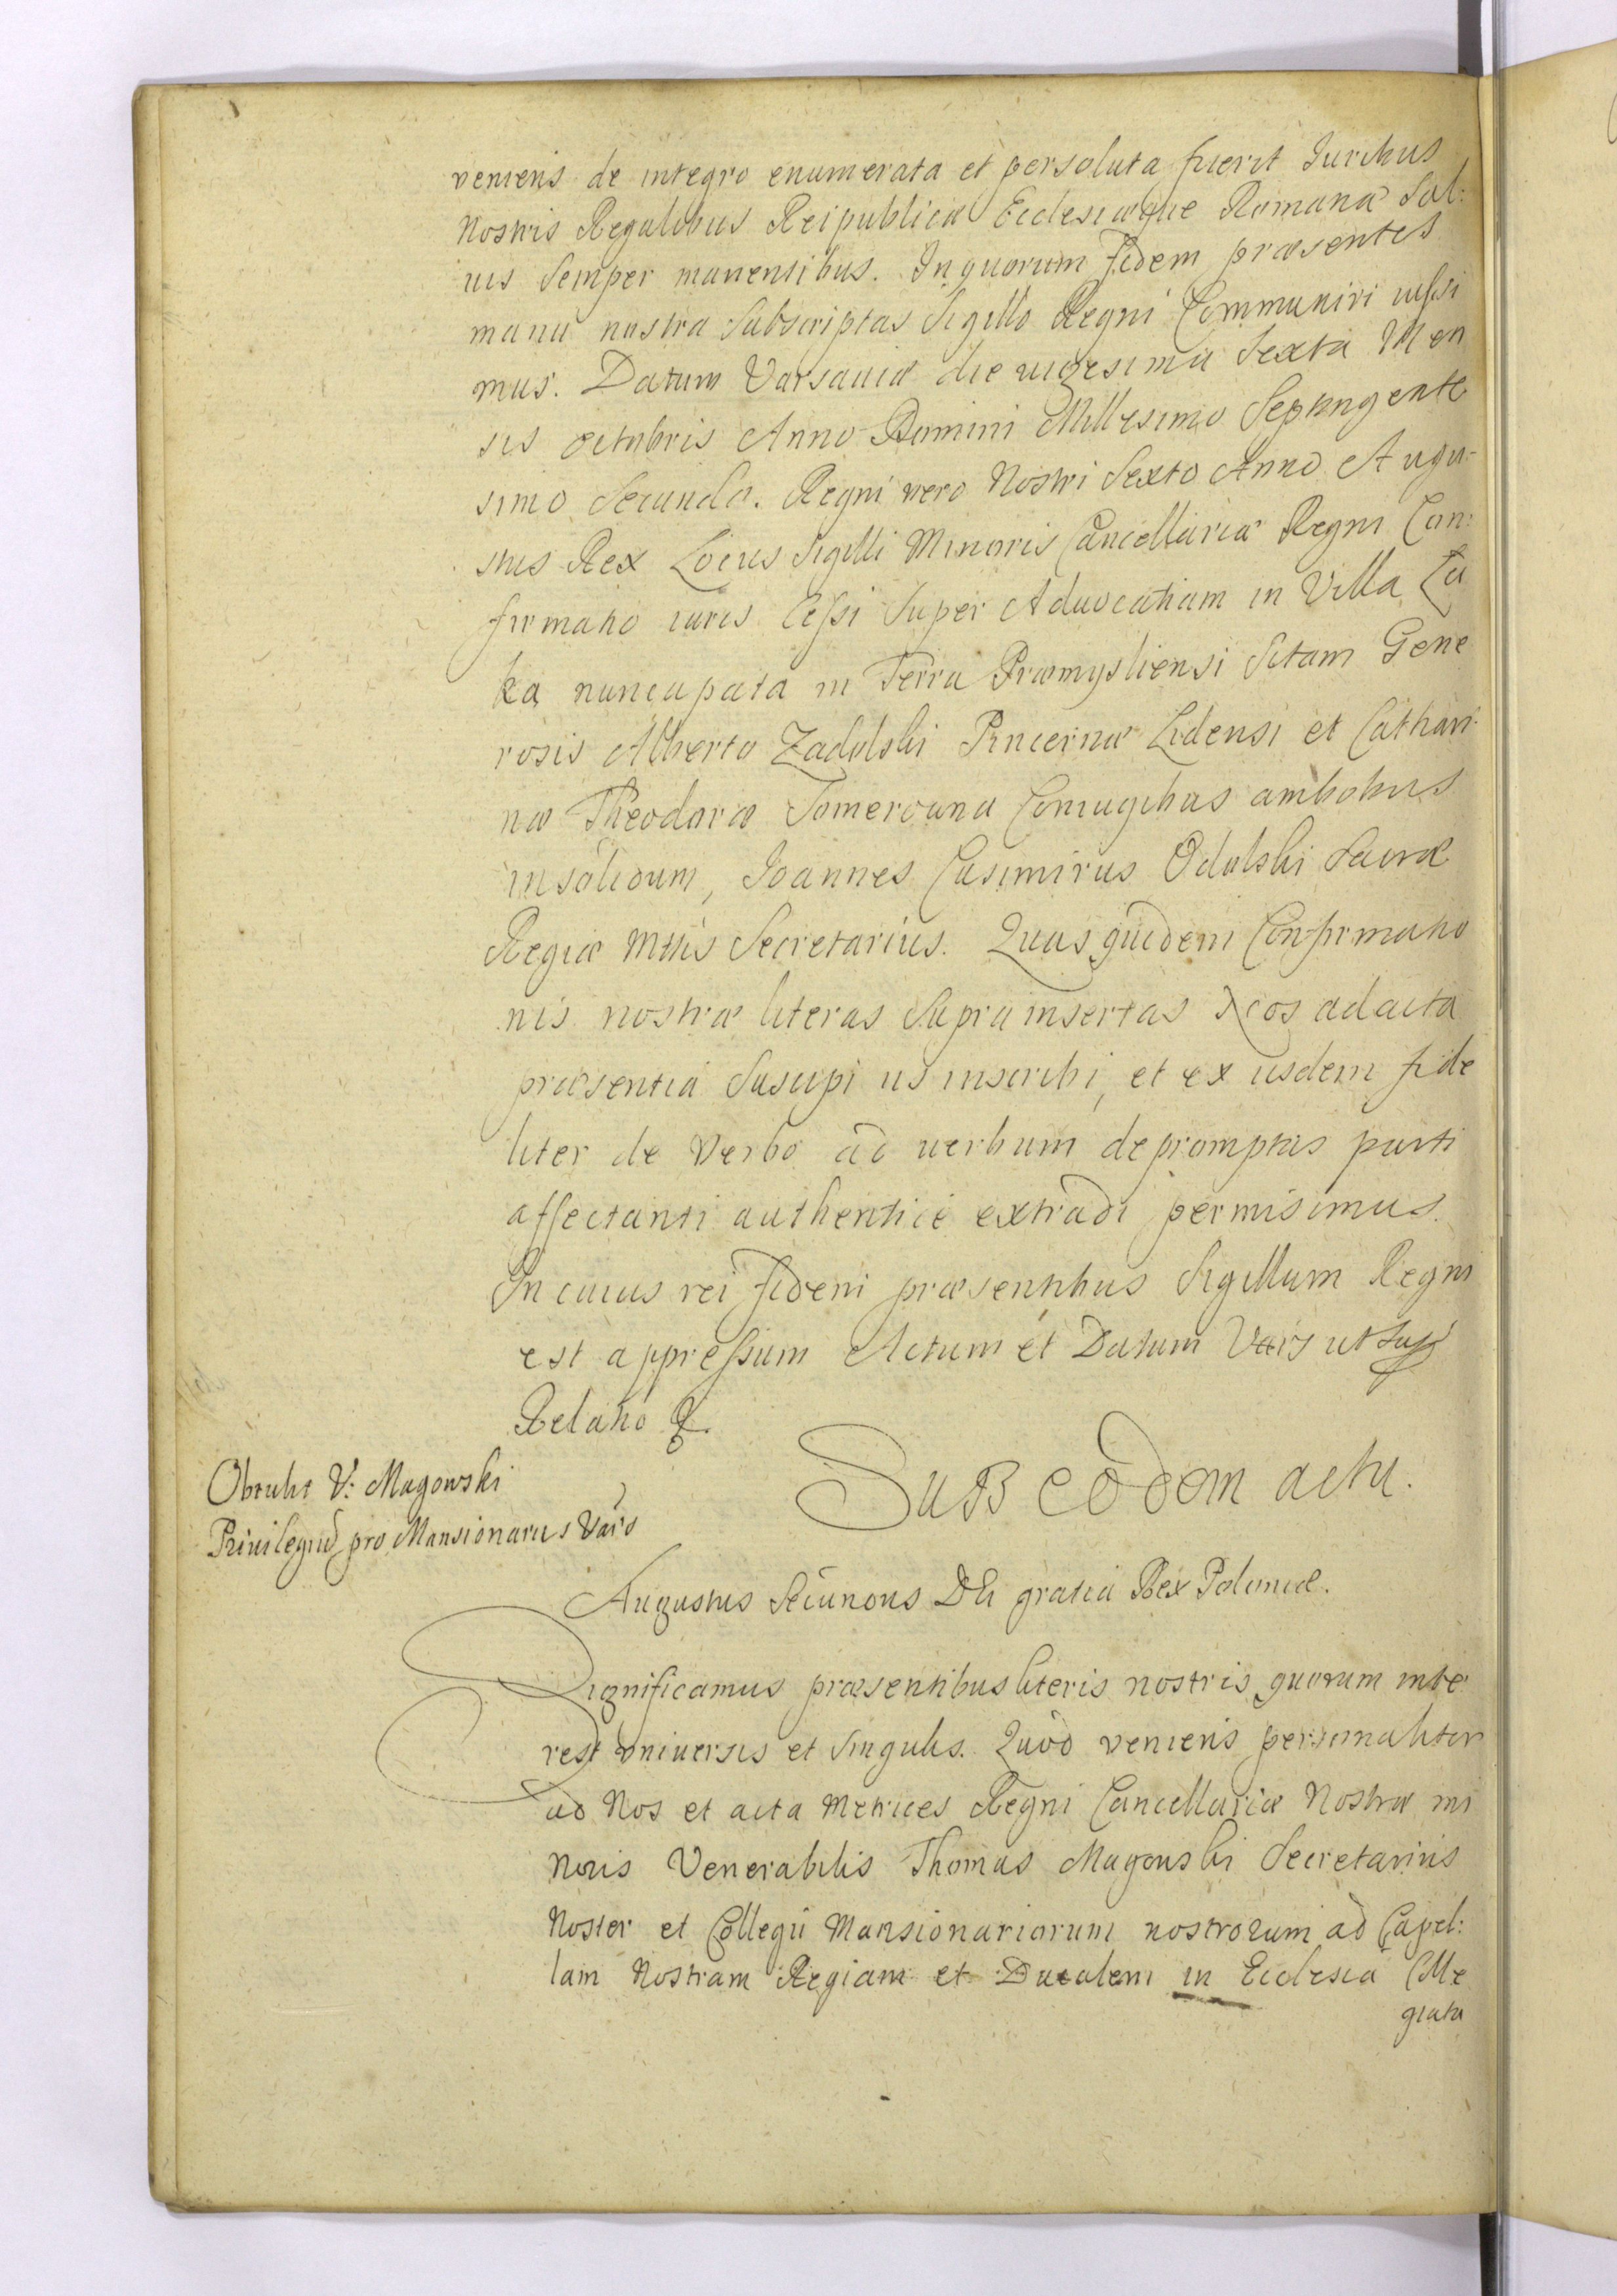 veniens de integro enumerata et persoluta fuerit Iuribus
Nostris Regalibus Reipublicæ Ecclesiæque Romanæ Sal:
uis Semper manensibus. In quorum fidem præsentes
manu nostra Subscriptas Sigillo Regni Communiri iussi
mus. Datum Varsaviæ die uigesima Sexta Men
sis Octobris Anno Domini Millesimo Septingente
simo Secundo. Regni vero Nostri Sexto Anno Augu-
stus Rex Locus Sigilli Minoris Cancellariæ Regni Con:
firmatio iuris Cessi Super Aduocatiam in Villa Łu
ka nuncupata in Terra Præmysliensi Sitam Gene
rosis Alberto Zadolski Pincernæ Lidensi et Cathari:
næ Theodoræ Coniugibus ambobus
in solidum, Joannes Casimirus Odolski Sacræ
Regiæ Mttis Secretarius. Quas quidem Confirmatio
nis nostræ literas Supra insertas Nos ad acta
præsentia Suscipi iis inscribi, et ex iisdem fide
liter de Verbo ad uerbum depromptas parti
affectanti authentice extradi permisimus.
In cuius rei fidem præsentibus Sigillum Regni
est appressum Actum et Datum Vars ut Sup
Relatio &
Obtulit V: Magowski
Privilegiu pro Mansionariis Vars
Sub eodem actu.
Augustus Secundus DEi gratia Rex Poloniæ.
Significamus præsentibus literis nostris quorum inte
rest vniuersis et Singulis. Quod veniens personaliter
ad Nos et acta Metrices Regni Cancellariæ Nostræ mi
noris Venerabilis Thomas Magowski Secretarius
Noster et Collegii Mansionariorum nostrorum ad Capel:
lam Nostram Regiam et Ducalem in Ecclesia Colle
giata